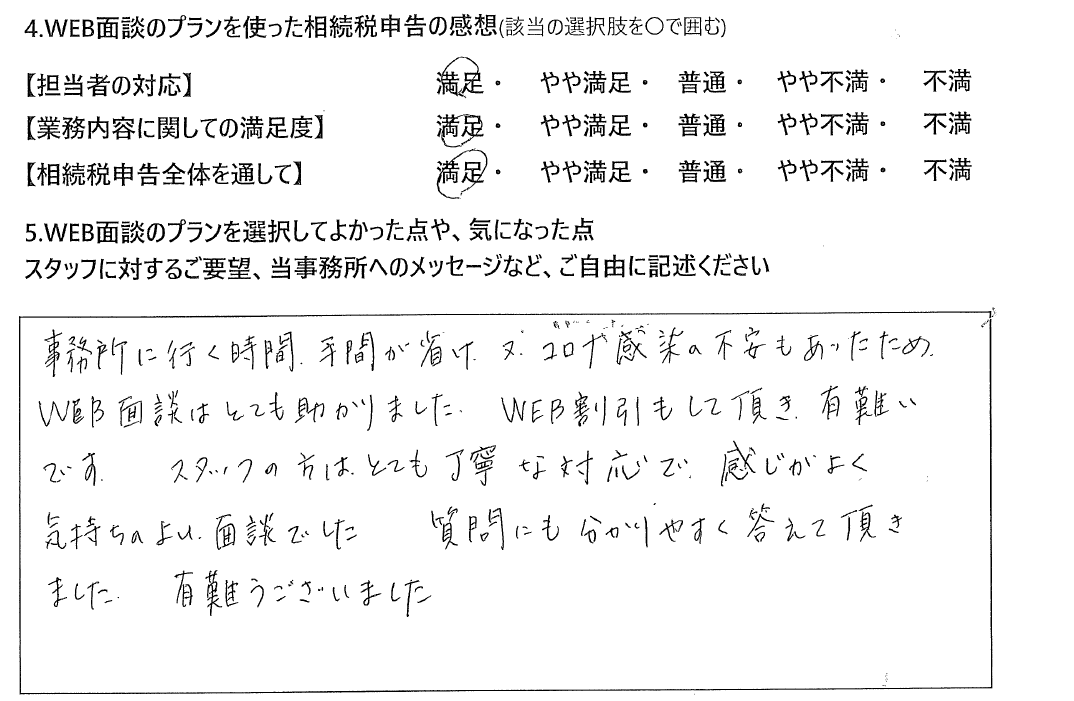 4.WEB面談のプランを使った相続税申告の感想(該当の選択肢を〇で囲む)
【担当者の対応】 満足・ やや満足・ 普通・ やや不満・ 不満
【業務内容に関しての満足度】 満足・ やや満足・ 普通・ やや不満・ 不満
【相続税申告全体を通して】 満足・ やや満足・ 普通・ やや不満・ 不満
5.WEB面談のプランを選択してよかった点や、気になった点
スタッフに対するご要望、当事務所へのメッセージなど、ご自由に記述ください
事務所に行く時間、手間が省け、又、コロナ感染の不安もあったため、
WEB面談はとても助かりました。 WEB割引もして頂き、有難い
です。 スタッフの方は、とても丁寧な対応で、感じがよく
気持ちのよい、面談でした 質問にも分かりやすく答えて頂き
ました。 有難うございました